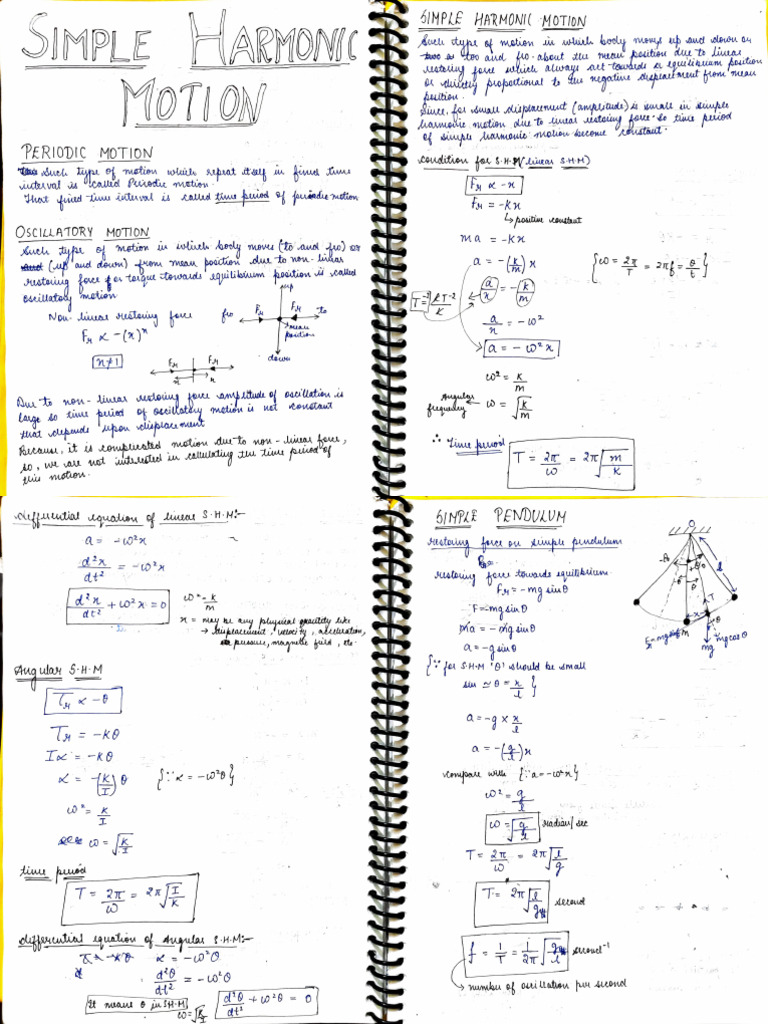 SIMPLE HARMONIC
MOTION
PERIODIC MOTION
Such type of motion which repeat itself in fixed time
interval is called Periodic motion.
That fixed time interval is called time period of periodic motion
OSCILLATORY MOTION
Such type of motion in which body moves (to and fro) or
(up and down) from mean position due to non-linear
restoring force or torque towards equilibrium position is called
oscillatory motion
Non-linear restoring force
Fr ∝ -(x)ⁿ
n≠1
up
fro
Fr
Fr
to
mean
position
down
Fr
Fr
x
x
Due to non-linear restoring force amplitude of oscillation is
large so time period of oscillatory motion is not constant
that depends upon displacement
Because, it is complicated motion due to non-linear force,
so, we are not interested in calculating the time period of
this motion.
SIMPLE HARMONIC MOTION
Such type of motion in which body moves up and down or
too and fro about the mean position due to linear
restoring force which always are towards a equilibrium position
or directly proportional to the negative displacement from mean
position.
Since, for small displacement (amplitude) is small in simple
harmonic motion due to linear restoring force so time period
of simple harmonic motion become constant.
condition for S.H.M (linear S.H.M)
Fr ∝ -x
Fr = -Kx
↳ positive constant
ma = -Kx
a = -(k/m) x
{ω = 2π/T = 2πf = θ/t}
a/x = -k/m
a/x = -ω²
a = -ω²x
ω² = k/m
Angular
frequency
ω = √k/m
∴ Time period
T = 2π/ω = 2π√m/K
differential equation of linear S.H.M:-
a = -ω²x
d²x/dt² = -ω²x
d²x/dt² + ω²x = 0
x = may be any physical quantity like
→ displacement, velocity, acceleration,
pressure, magnetic field, etc.
Angular S.H.M
τr ∝ -θ
τr = -Kθ
Iα = -Kθ
α = -(K/I) θ {∵ α = -ω²θ}
ω² = K/I
ω = √K/I
time period
T = 2π/ω = 2π√I/K
differential equation of Angular S.H.M:-
α = -ω²θ
d²θ/dt² = -ω²θ
It means θ in S.H.M
ω = √K/I
d²θ/dt² + ω²θ = 0
SIMPLE PENDULUM
restoring force on simple pendulum
restoring force towards equilibrium
Fr = -mg sinθ
F = -mg sinθ
ma = -mg sinθ
a = -g sinθ
{∵ for S.H.M 'θ' should be small
sin ≃ θ = x/l }
a = -g × x/l
a = -(g/l)x
compare with {∵ a = -ω²x}
ω² = g/l
ω = √g/l radian/sec
T = 2π/ω = 2π√l/g
T = 2π√l/g second
f = 1/T = 1/2π √g/l second⁻¹
→ number of oscillation per second
O
l
T
x
M
θ
mg
mg cosθ